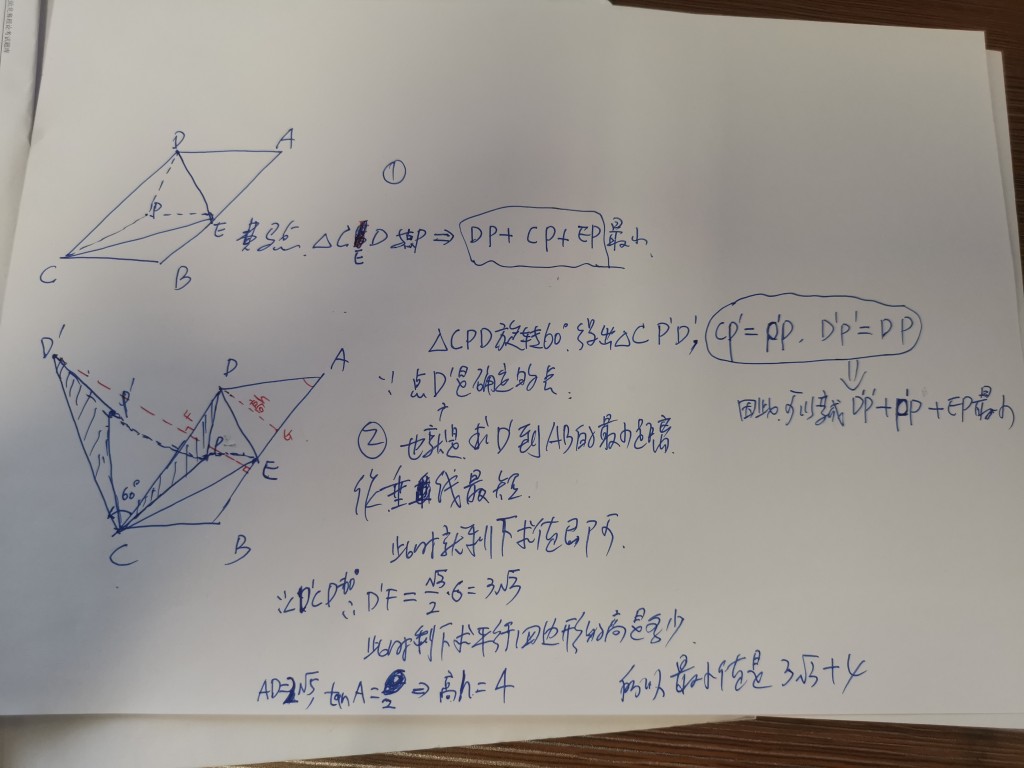 D A
①
P
E
费马点. △CED 点P ⇒ DP + CP + EP 最小
C B
D' A
D
P'
F
F
P
E
60°
C B
△CPD旋转60°. 得出△CP'D', CP' = P'P. D'P' = DP
∵ 点D'是确定的点.
因此可以转成 D'P' + P'P + EP最小
② 也就是求D'到AB的最小距离.
作垂线最短.
此时就剩下求值即可.
∵∠D'CD=60° ∴ D'F = √3/2 · 6 = 3√3
此时剩下求平行四边形的高是多少.
AD=2√5, tan A = 2 ⇒ 高h = 4
所以最小值是 3√3 + 4